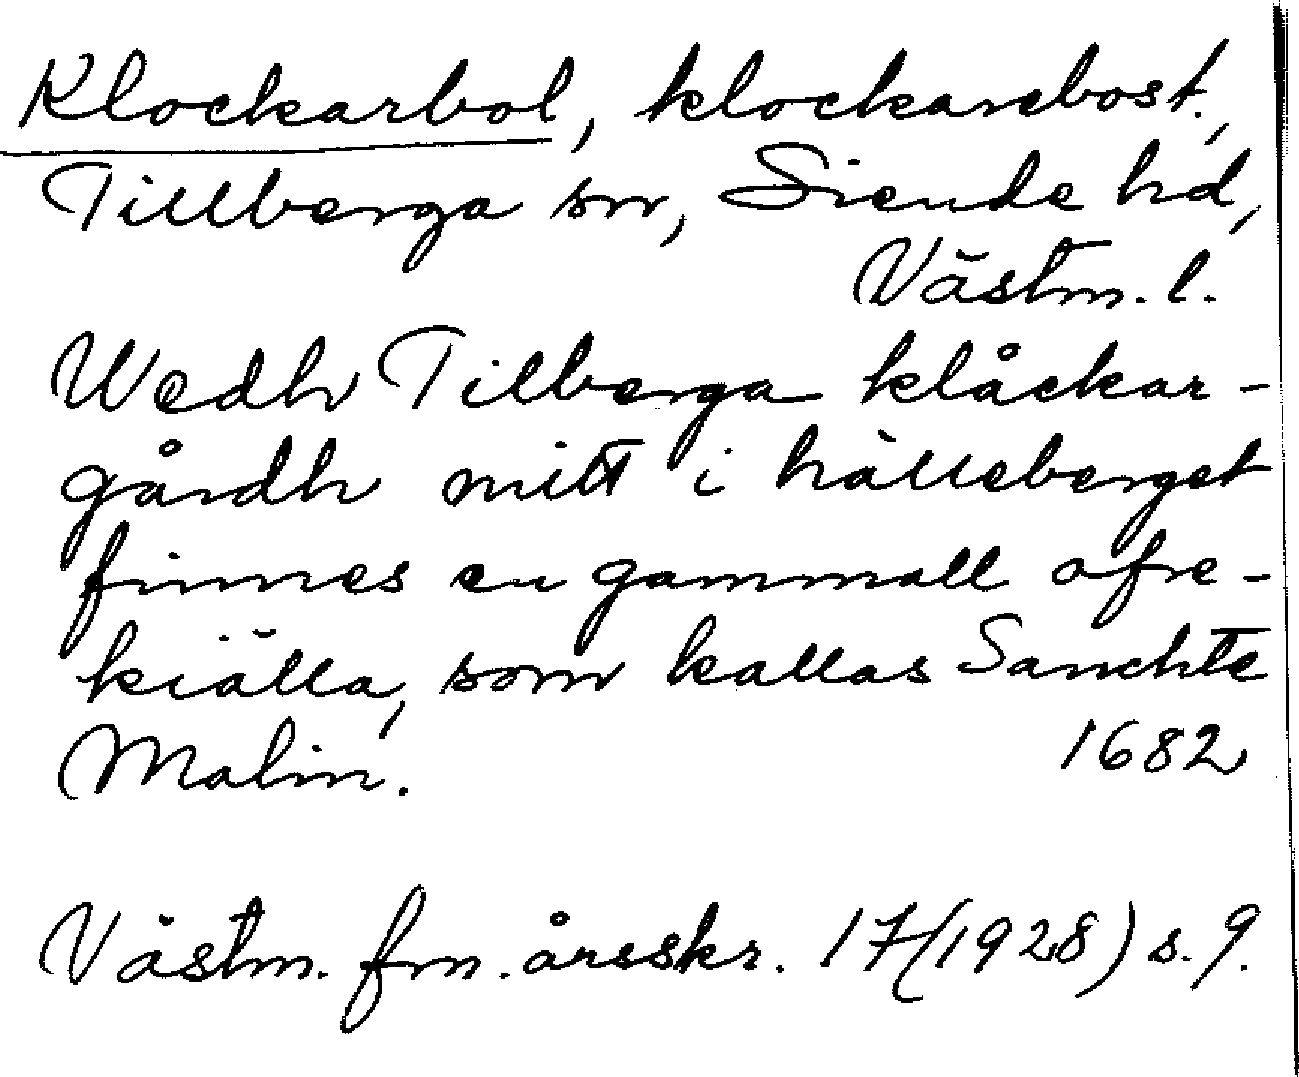 Klockarbol, klockarebost.,
Tillberga sn, Siende hd,
Västm. l.
Wedh Tilberga klåckar-
gårdh mitt i hälleberget
finnes en gammall ofre-
kiälla, som kallas Sanchte
Malin. 1682
Västm. fm. årsskr. 17 (1928) s. 9.